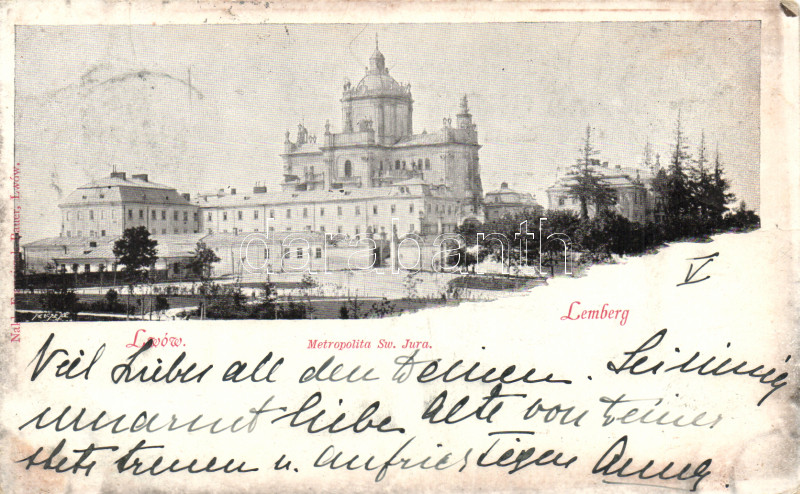 Lwów.
Metropolita Sw. Jura.
Lemberg
V
Viel Liebes all den Deinen.
umarmt liebe Alte von Deiner
stets treuen u. aufrichtigen Anny
darabanth